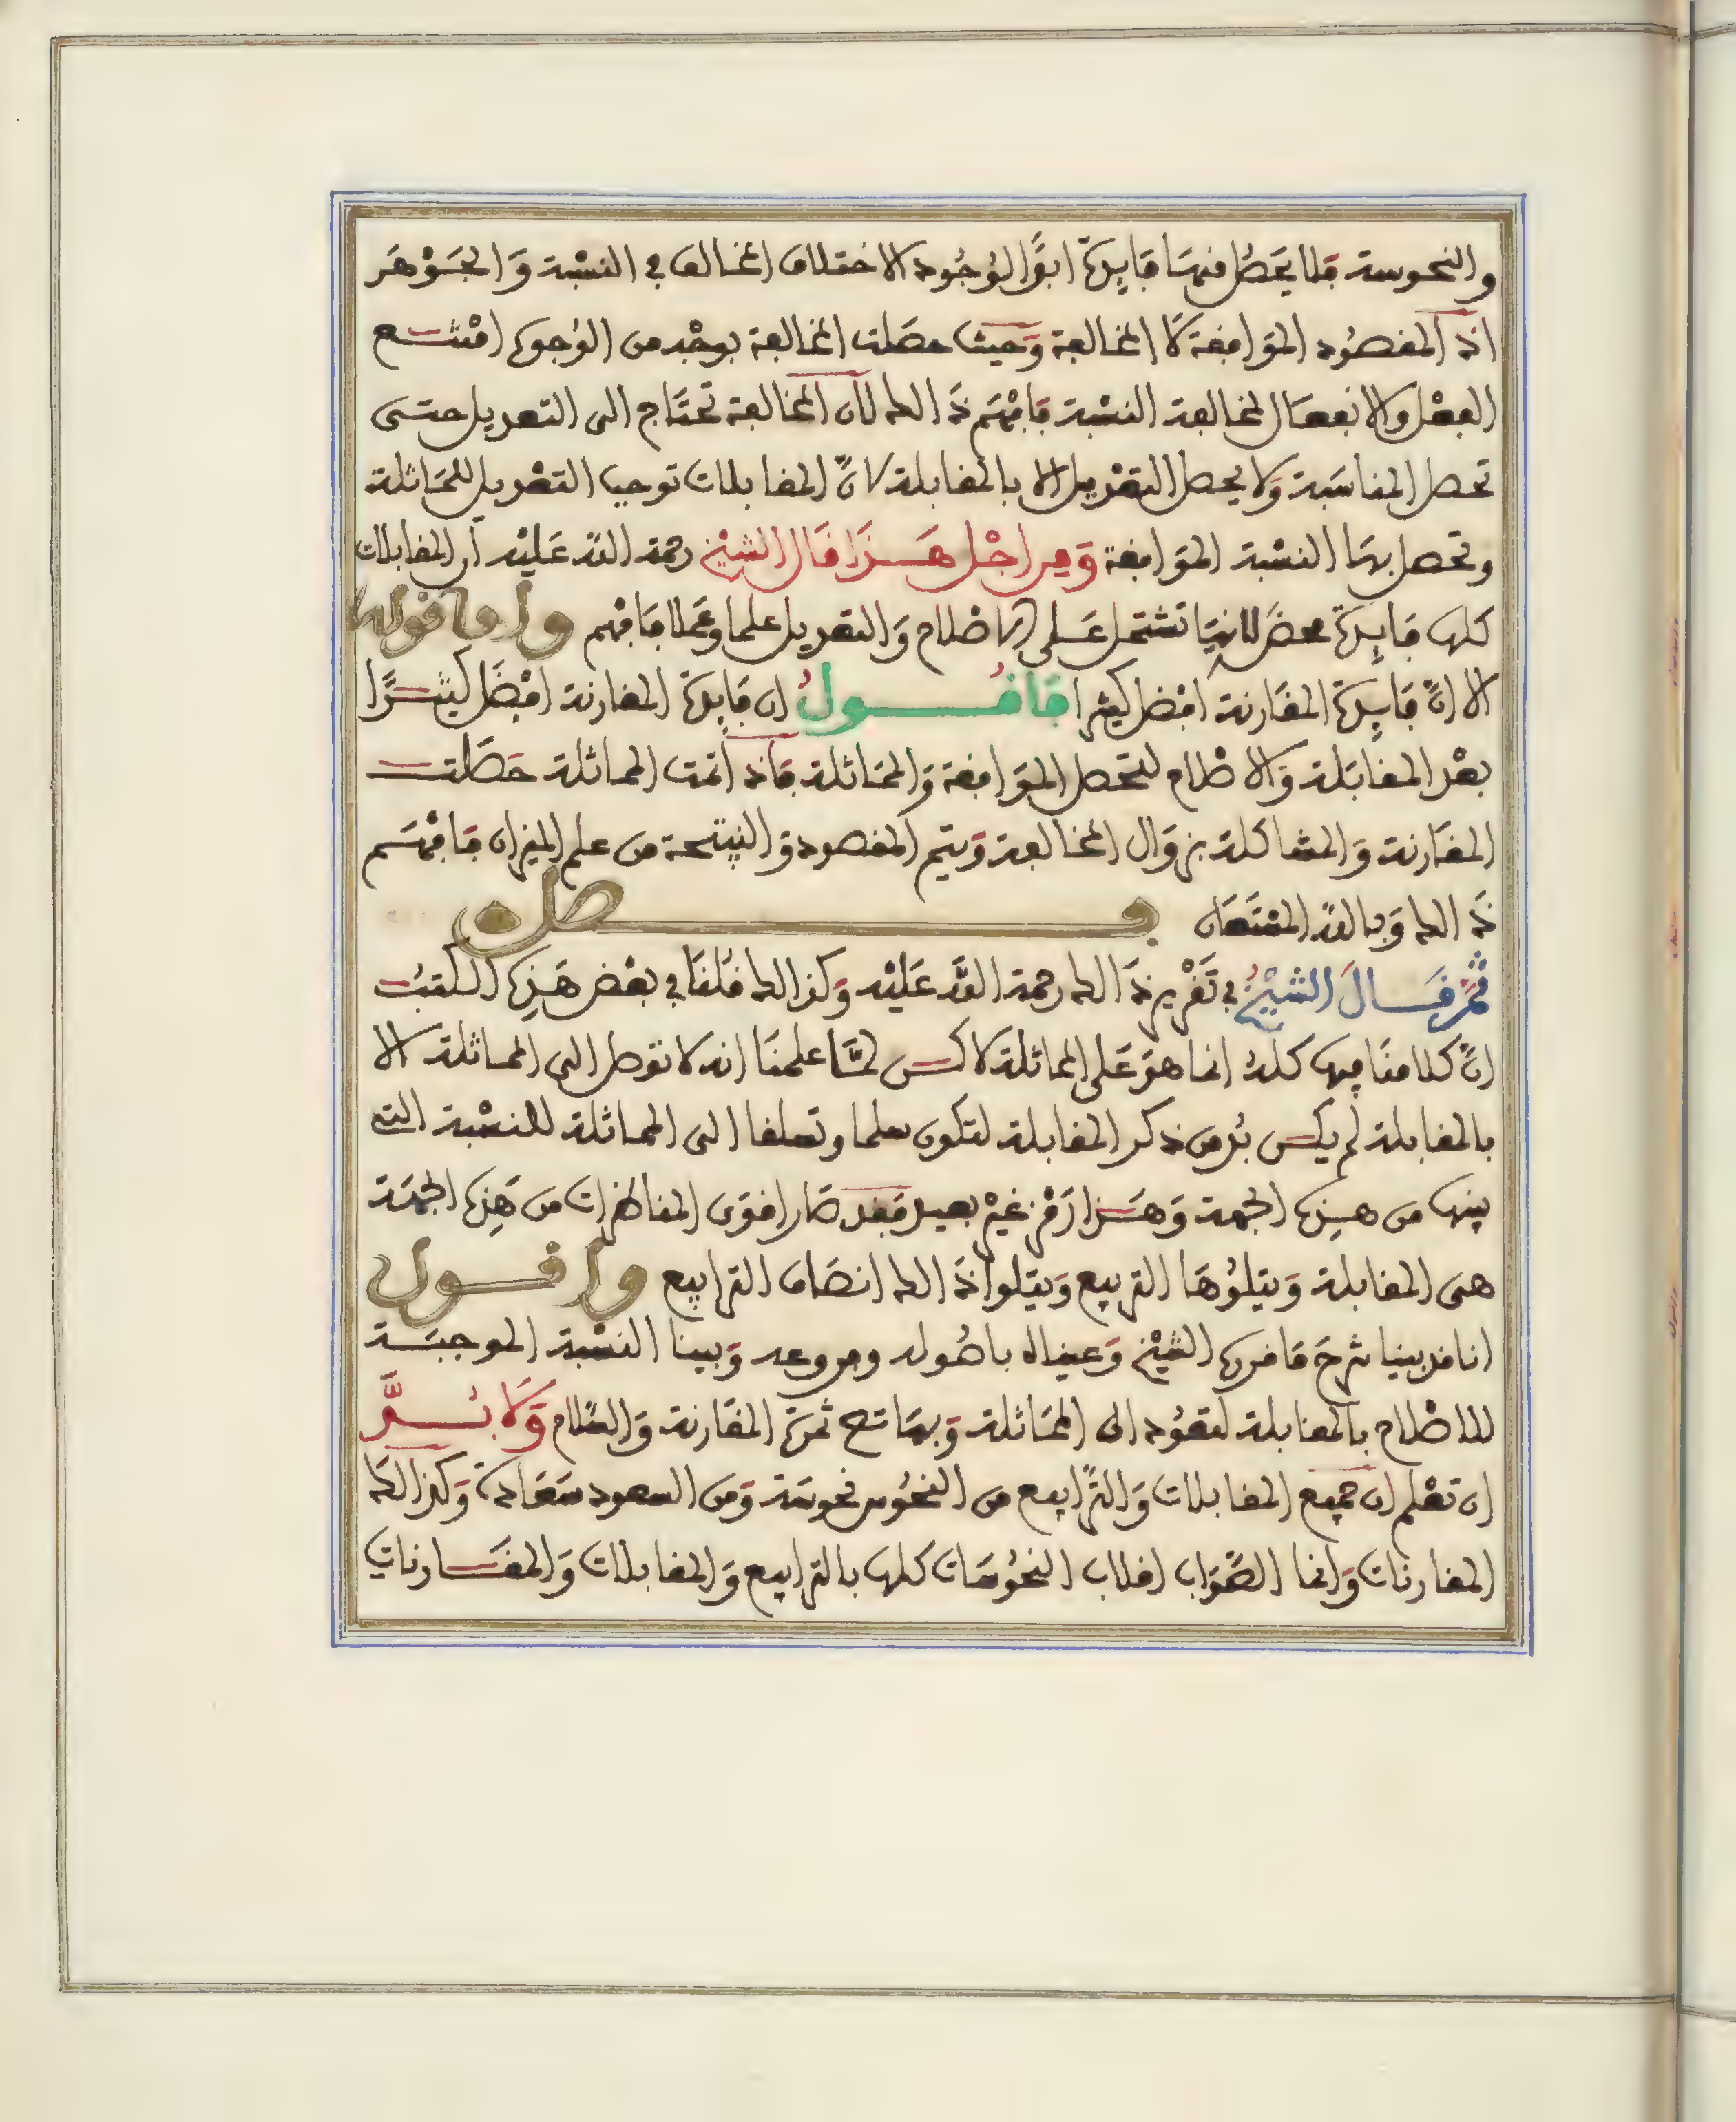 والنحوسة فلا يحصل منها فايدة ابدًا لوجود الاختلاف المخالف في النسبة وَالجَوْهَر
اذ المقصُود الموَافقة لا المخالفة وَحيث حصَلت المخالفة بوجْه من الوُجوه امْتنع
الفعْل والانفعَال لمخالفة النسْبة فافْهَم ذَالك لان المخالفة تحتَاج الى التعديل حتى
تحصل المناسَبة وَلا يحصل التعْديل الا بالمقابلة لانّ المقابلات توجب التعْديل للممَاثلة
وتحصل بهَا النسْبة الموَافقة وَمِن اجْل هَذَا قَال الشيْخ رحمة اللّه عَليْه ان المقابلات
كلها فايِدة محضَة لانهَا تشتمل عَلى الاصْلاح وَالتعديل علما وعَملا فافهم واما قوله
الا انّ فايِدة المقَارنة افْضل كثيرا فاقُولُ ان فايِدة المقارنة افْضَل كثيرًا
بعْد المقابَلة وَالاصْلاح لتحصل الموَافقة وَالممَاثلة فاذا تمت المماثلة حَصَلت
المقَارنة وَالمشاكلة بزوَال المخالفة وَيتم المقصود وَالنتيجة من علم الميزان فافهَم
ذَالك وَباللّه المسْتعَان فصل
ثمّ قَالَ الشيْخُ في تَقْرير ذَالك رحمة اللّه عَليْه وَكذالك قُلنَا في بعْض هَذِه الكتبُ
انّ كلامنَا فيها كلهُ انما هوَ عَلى المماثلة لاكن لمّا علمنَا انه لا نوصل الى المماثلة الا
بالمقابلة لم يكن بُد من ذكر المقابلة لتكون سلما وتسلقا الى المماثلة للنسْبة التي
بينها من هذِه الجهة وَهَذا رَمْز غيْر بعيد فقد صَار اقوَى المناظرات من هَذِه الجهَة
هي المقابلة وَيتلوُهَا التربيع وَيتلوا ذَالك انصَاف الترابيع واقول
انا قد بينا شرحَ ما قرره الشيْخ وَعيناه باصُوله وفروعه وَبينا النسْبة الموجبَة
للاصْلاح بالمقابلة لتعُود الى الممَاثلة وَبهَا تتم ثمرَة المقَارنة وَالسَّلام وَلا بُدَّ
ان تعْلم ان جميع المقابلات وَالترَابيع من النحُوس نحوسَة وَمن السعود سَعَادة وَكذالك
المقارنات وَانما الصَّوَاب اقلاب النحُوسَات كلها بالترابيع وَالمقابلات وَالمقَارنات